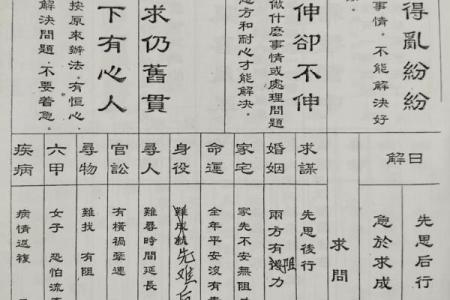 得亂紛紛
事情。不能解決好
伸卻不伸
做什麼事情或處理問題
方和耐心才能解決。
求仍舊貫
下有心人
按原來辦法。有恒心。
解決問題。不要着急。
解日
先思后行
急於求成
求問
求謀
先思後行
婚姻
兩方有阻力
家宅
家先不安無阻
命運
全年平安沒有
身役
先难后
尋人
難尋時間延長
官訟
有橫禍牽連
尋物
難找 有阻
六甲
女子 恐怕流
疾病
病情返複